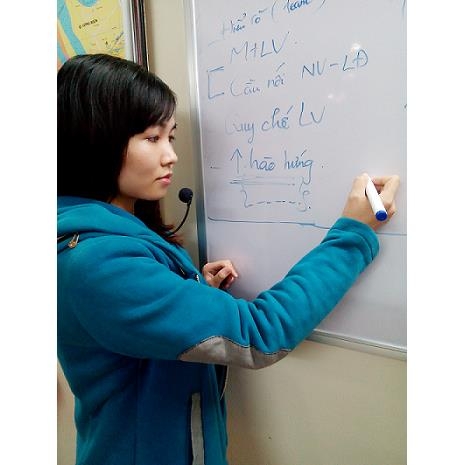 Hiểu rõ (team)
MTLV.
Cầu nối NV-LĐ
Quy chế LV
↑ hào hứng.